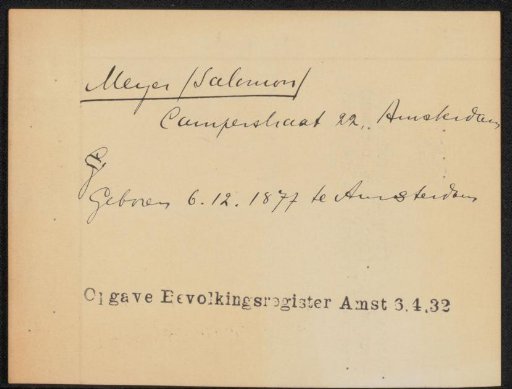 Meyer (Salomon)
Camperstraat 22, Amsterdam
Geboren 6.12.1877 te Amsterdam
Opgave Bevolkingsregister Amst 3.4.32